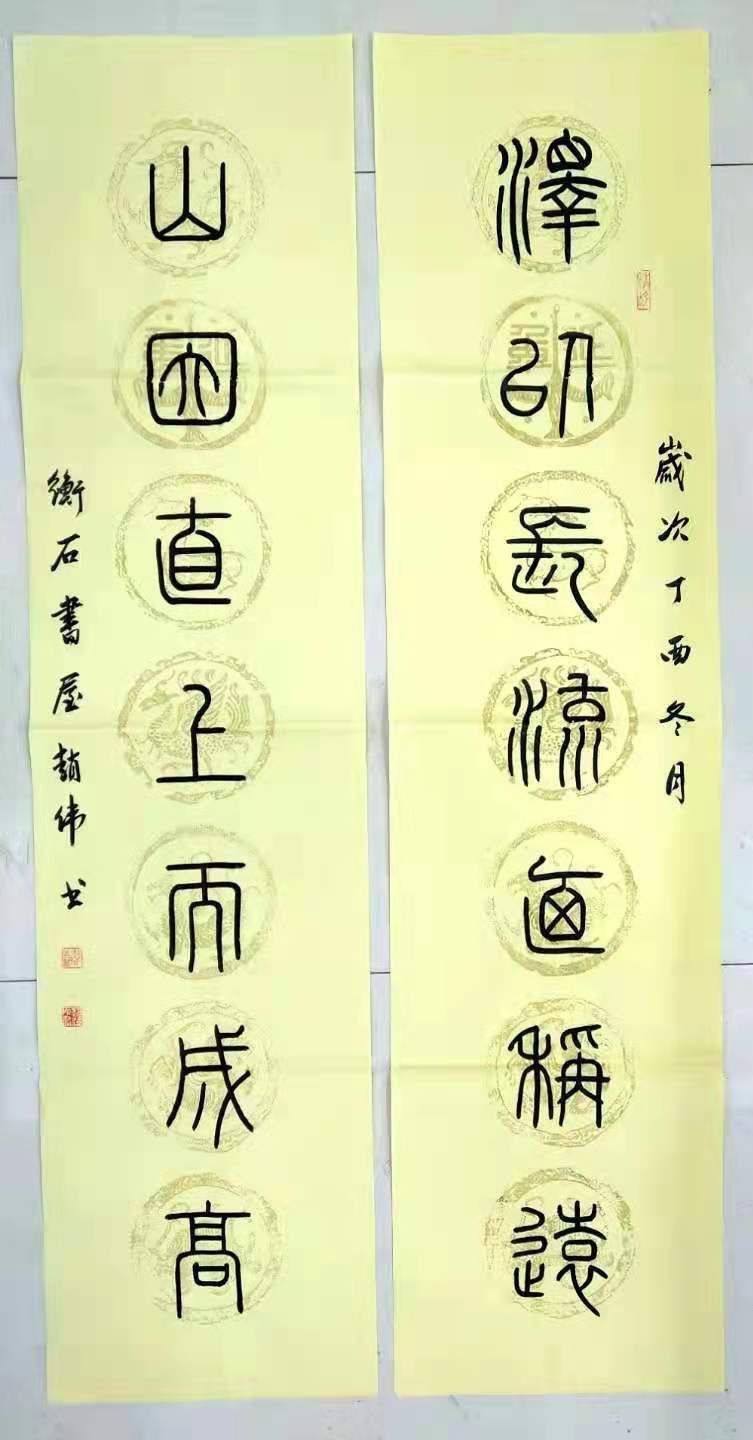 歲次丁酉冬月
澤以長流迺稱遠
山因直上而成高
衡石書屋趙伟书